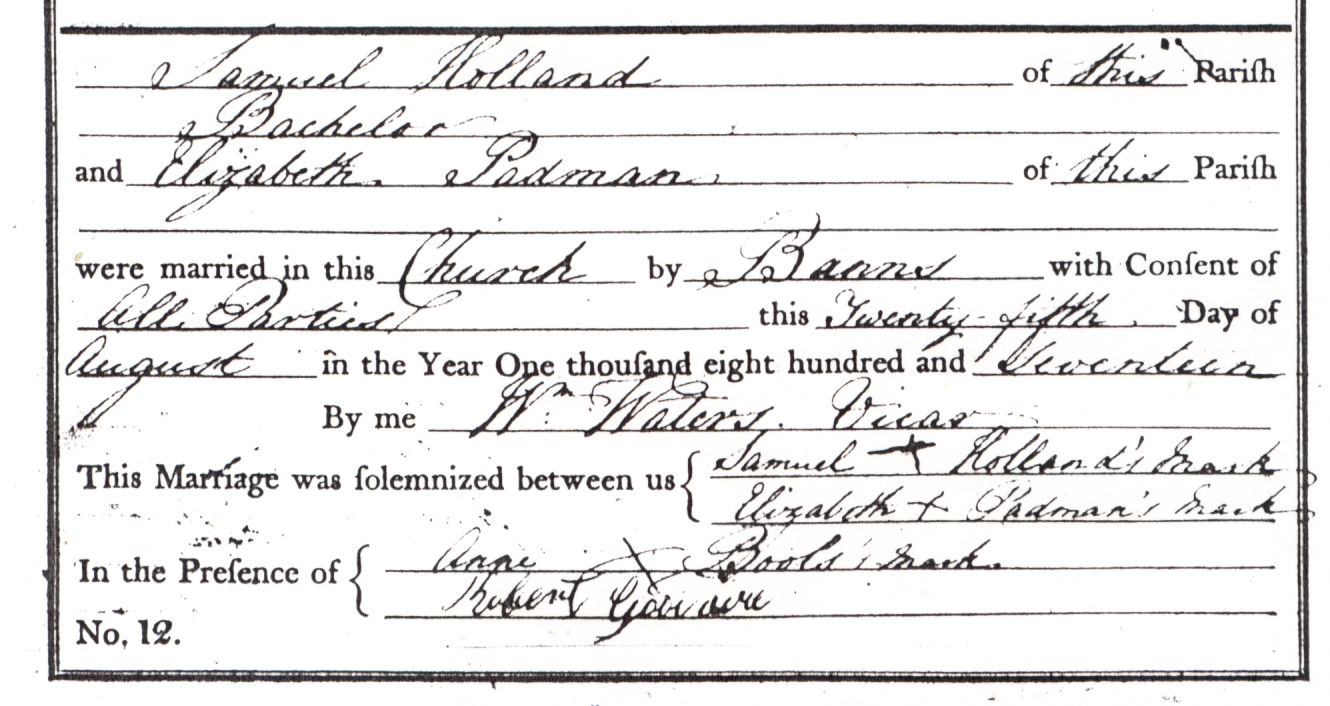 Samuel Holland of this Pariſh
Bachelor
and Elizabeth Padman of this Pariſh
were married in this Church by Banns with Conſent of
All Parties this Twenty fifth Day of
August in the Year One thouſand eight hundred and Seventeen
By me Wm Waters. Vicar
This Marriage was ſolemnized between us { Samuel + Holland's mark
Elizabeth + Padman's mark
In the Preſence of { Anne X Bools's mark
Robert
No. 12.